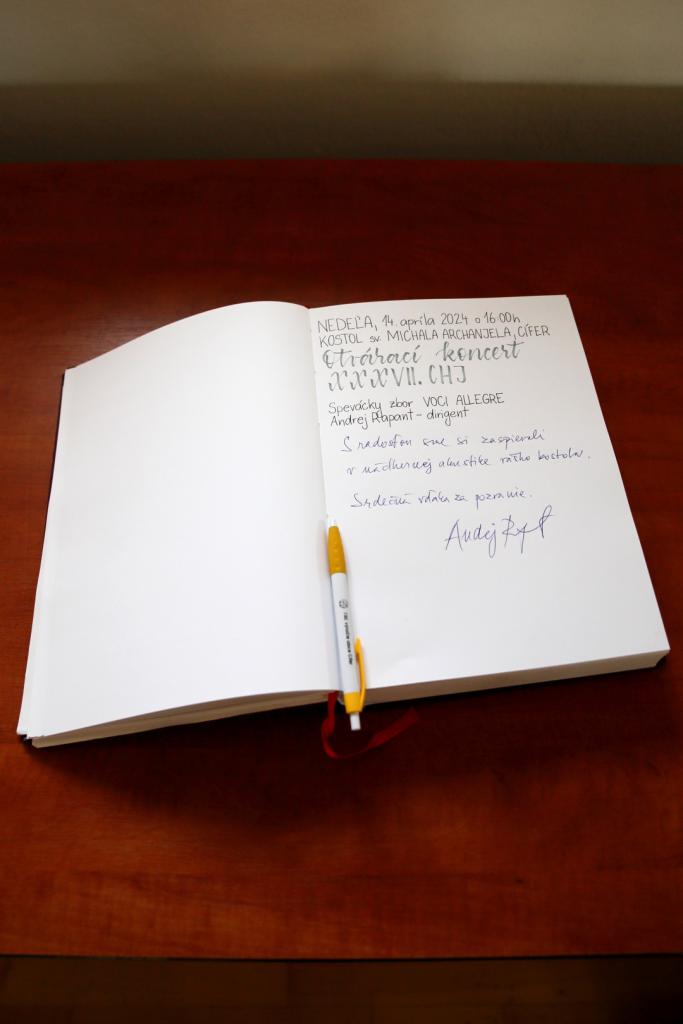 NEDEĽA, 14. apríla 2024 o 16:00h
KOSTOL sv. MICHALA ARCHANJELA, CÍFER
Otvárací koncert
XXXVII. CHJ
Spevácky zbor VOCI ALLEGRE
Andrej Rapant - dirigent
S radosťou sme si zaspievali
v nádhernej akustike vášho kostola.
Srdečná vďaka za pozvanie.
Andrej